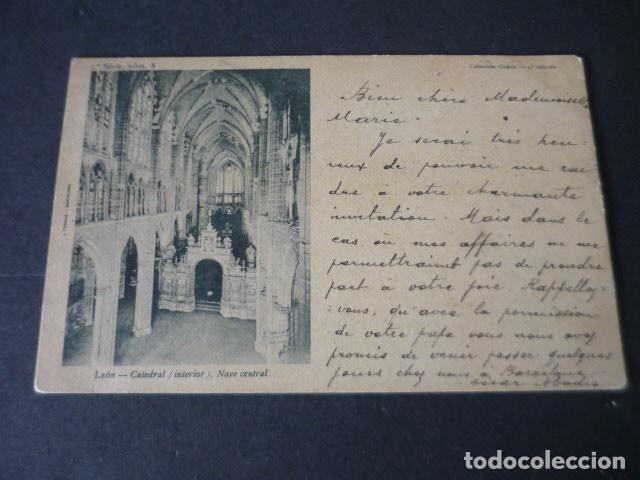 1ª Série, núm. 8
Colección Gracia. — 1ª edición
Bien chère Mademoiselle
Marie.
Je serai très heu-
reux de pouvoir me ren
dre à votre charmante
invitation. Mais dans le
cas où mes affaires ne me
permettraient pas de prendre
part à votre joie. Rappellez
-vous, qu'avec la permission
de votre papa vous nous avez
promis de venir passer quelques
jours chez nous à Barcelone
Oscar
LEÓN — Catedral (interior). Nave central
todocoleccion.net